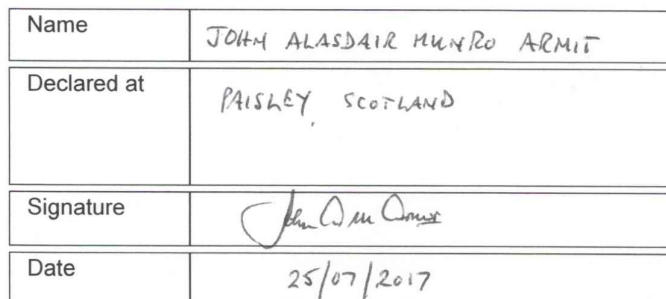 Name JOHN ALASDAIR MUNRO ARMIT
Declared at PAISLEY, SCOTLAND
Signature John A M Armit
Date 25/07/2017